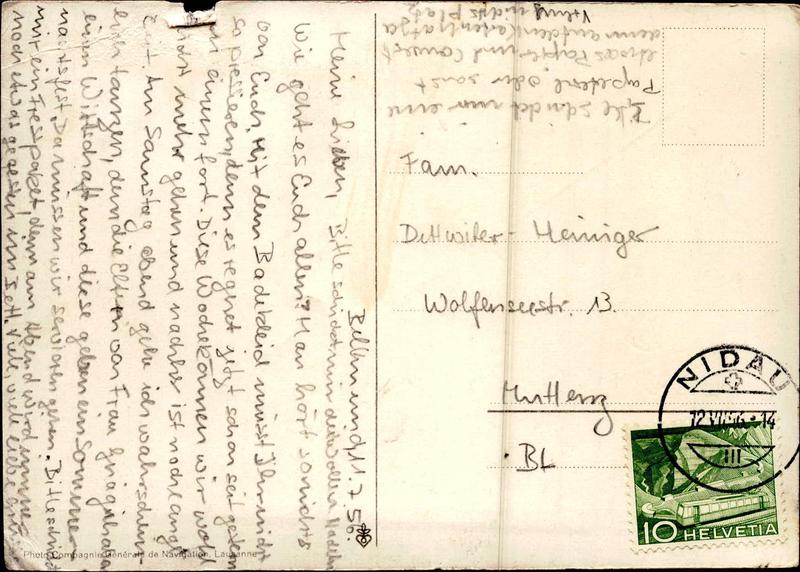 Bellmund, 11.7.56.
Meine Lieben, Bitte schickt mir die Wollen Nadeln
Wie geht es Euch allen? Man hört so nichts
von Euch. Mit dem Badekleid müsst Ihr nicht
so pressieren, denn es regnet jetzt schon seit gestern
in einem fort. Diese Woche können wir wohl
nicht mehr gehen und nachher ist noch lange
Zeit. Am Samstag abend gehe ich wahrschein-
lich tanzen, denn die Eltern von Frau
eine Wirtschaft und diese geben ein Sommer-
nachtsfest. Da müssen wir servieren gehen. Bitte schickt
mir ein Fresspaket, denn am Abend wird immer
noch etwas gegessen im Bett. Viele, viele liebe
Bitte schicket mir eine
Papeterie oder sonst
etwas Papier und Couvert
denn auf den Karten hat ja
nichts Platz
Fam.
Dettwiler-Heiniger
Wolfenseestr. 13.
Muttenz
BL
NIDAU
12.VII.56-14
III
10 HELVETIA
Photo Compagnie Générale de Navigation, Lausanne